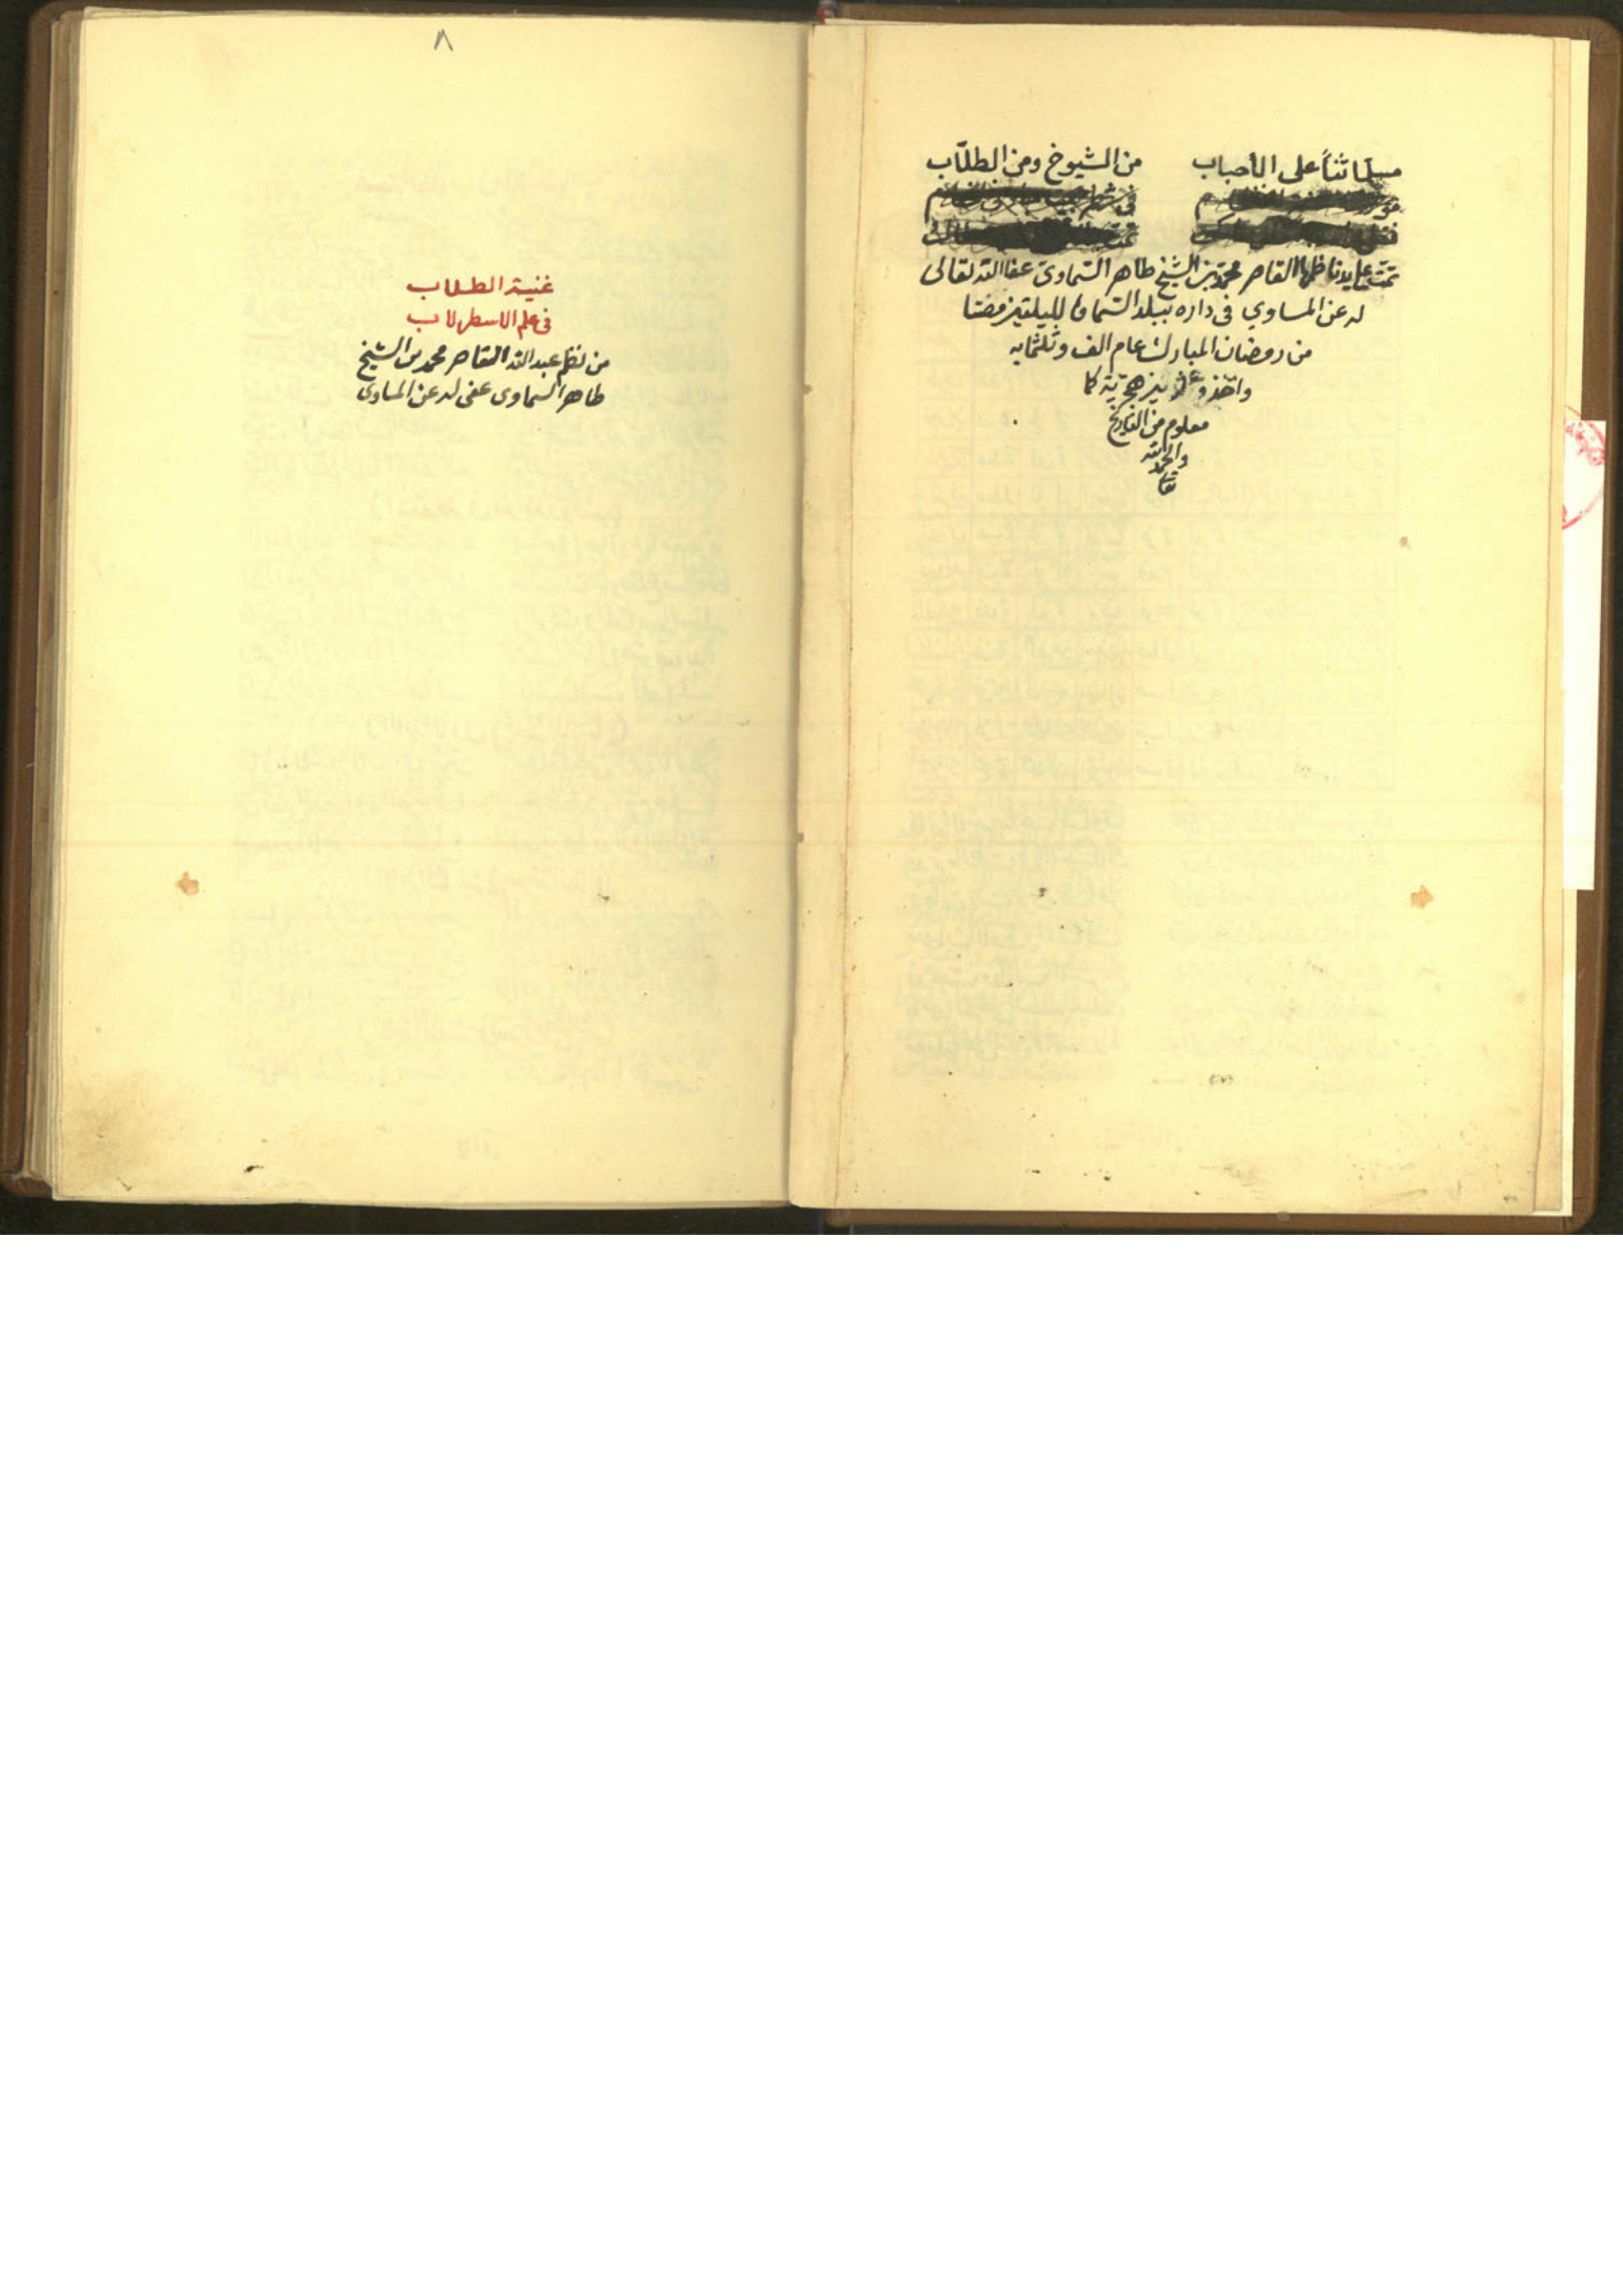 مسلما ثناً على الأحباب من الشيوخ ومن الطلّاب
تمت على يد ناظمها القاصر محمد بن الشيخ طاهر السماوي عفا الله تعالى
له عن المساوي في داره ببلد السماوة لليلتين مضتا
من رمضان المبارك عام الف وثلثمايه
هجرية كما
معلوم من التاريخ
والحمد لله
٨
غنية الطلاب
في علم الاسطرلاب
من نظم عبد الله القاصر محمد بن الشيخ
طاهر السماوى عفى له عن المساوى